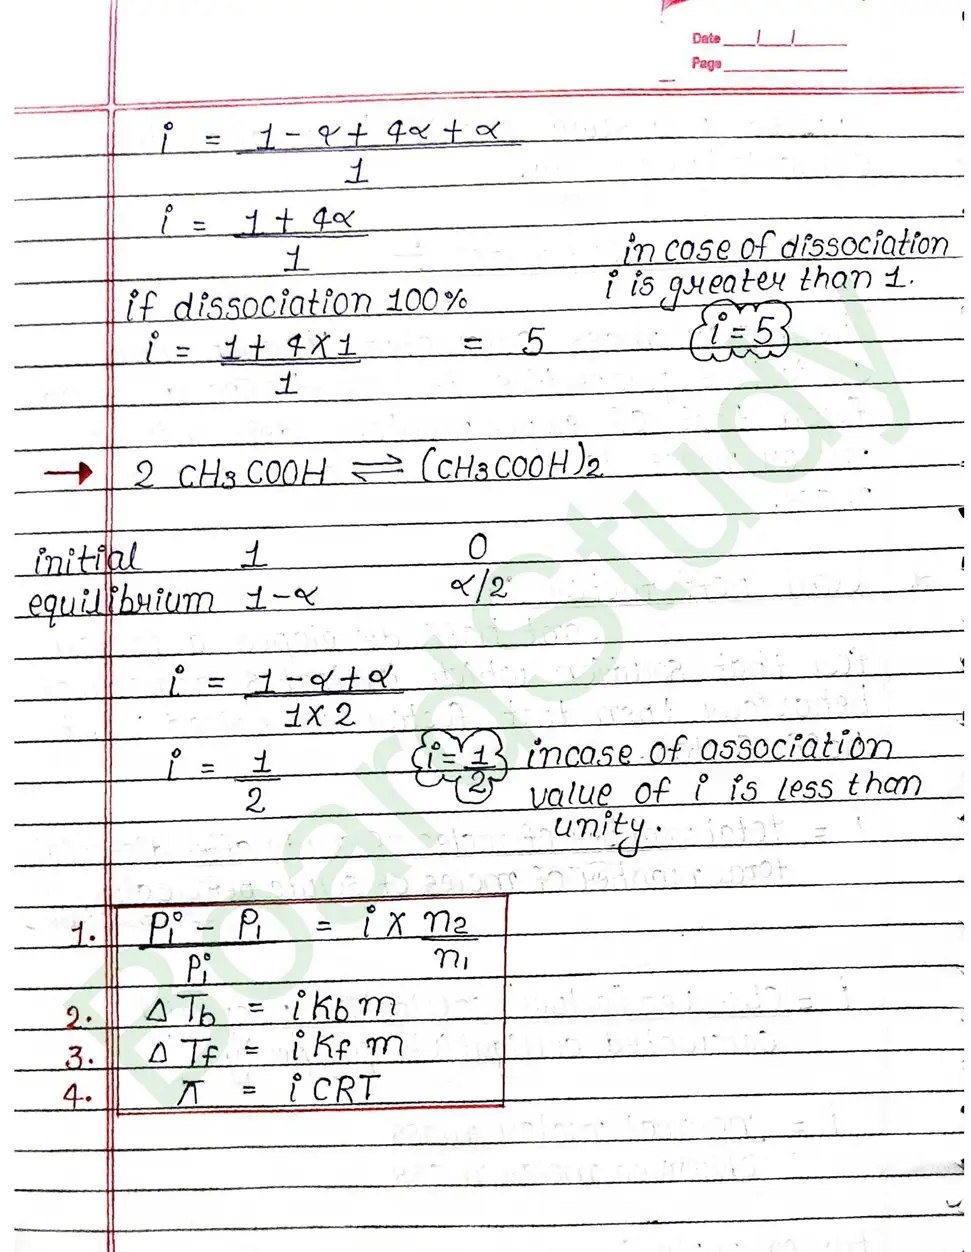 Date ___/___/___
Page ___
i = 1 - α + 4α + α / 1
i = 1 + 4α / 1
in case of dissociation
i is greater than 1.
if dissociation 100%
i = 1 + 4 × 1 / 1 = 5
i = 5
→ 2 CH3COOH ⇌ (CH3COOH)2
initial 1 0
equilibrium 1-α α/2
i = 1 - α + α / 1 × 2
i = 1 / 2
i = 1/2
incase of association
value of i is less than
unity.
1. P₁° - P₁ / P₁° = i × n₂ / n₁
2. Δ Tb = i Kb m
3. Δ Tf = i Kf m
4. π = i CRT
BoardStudy